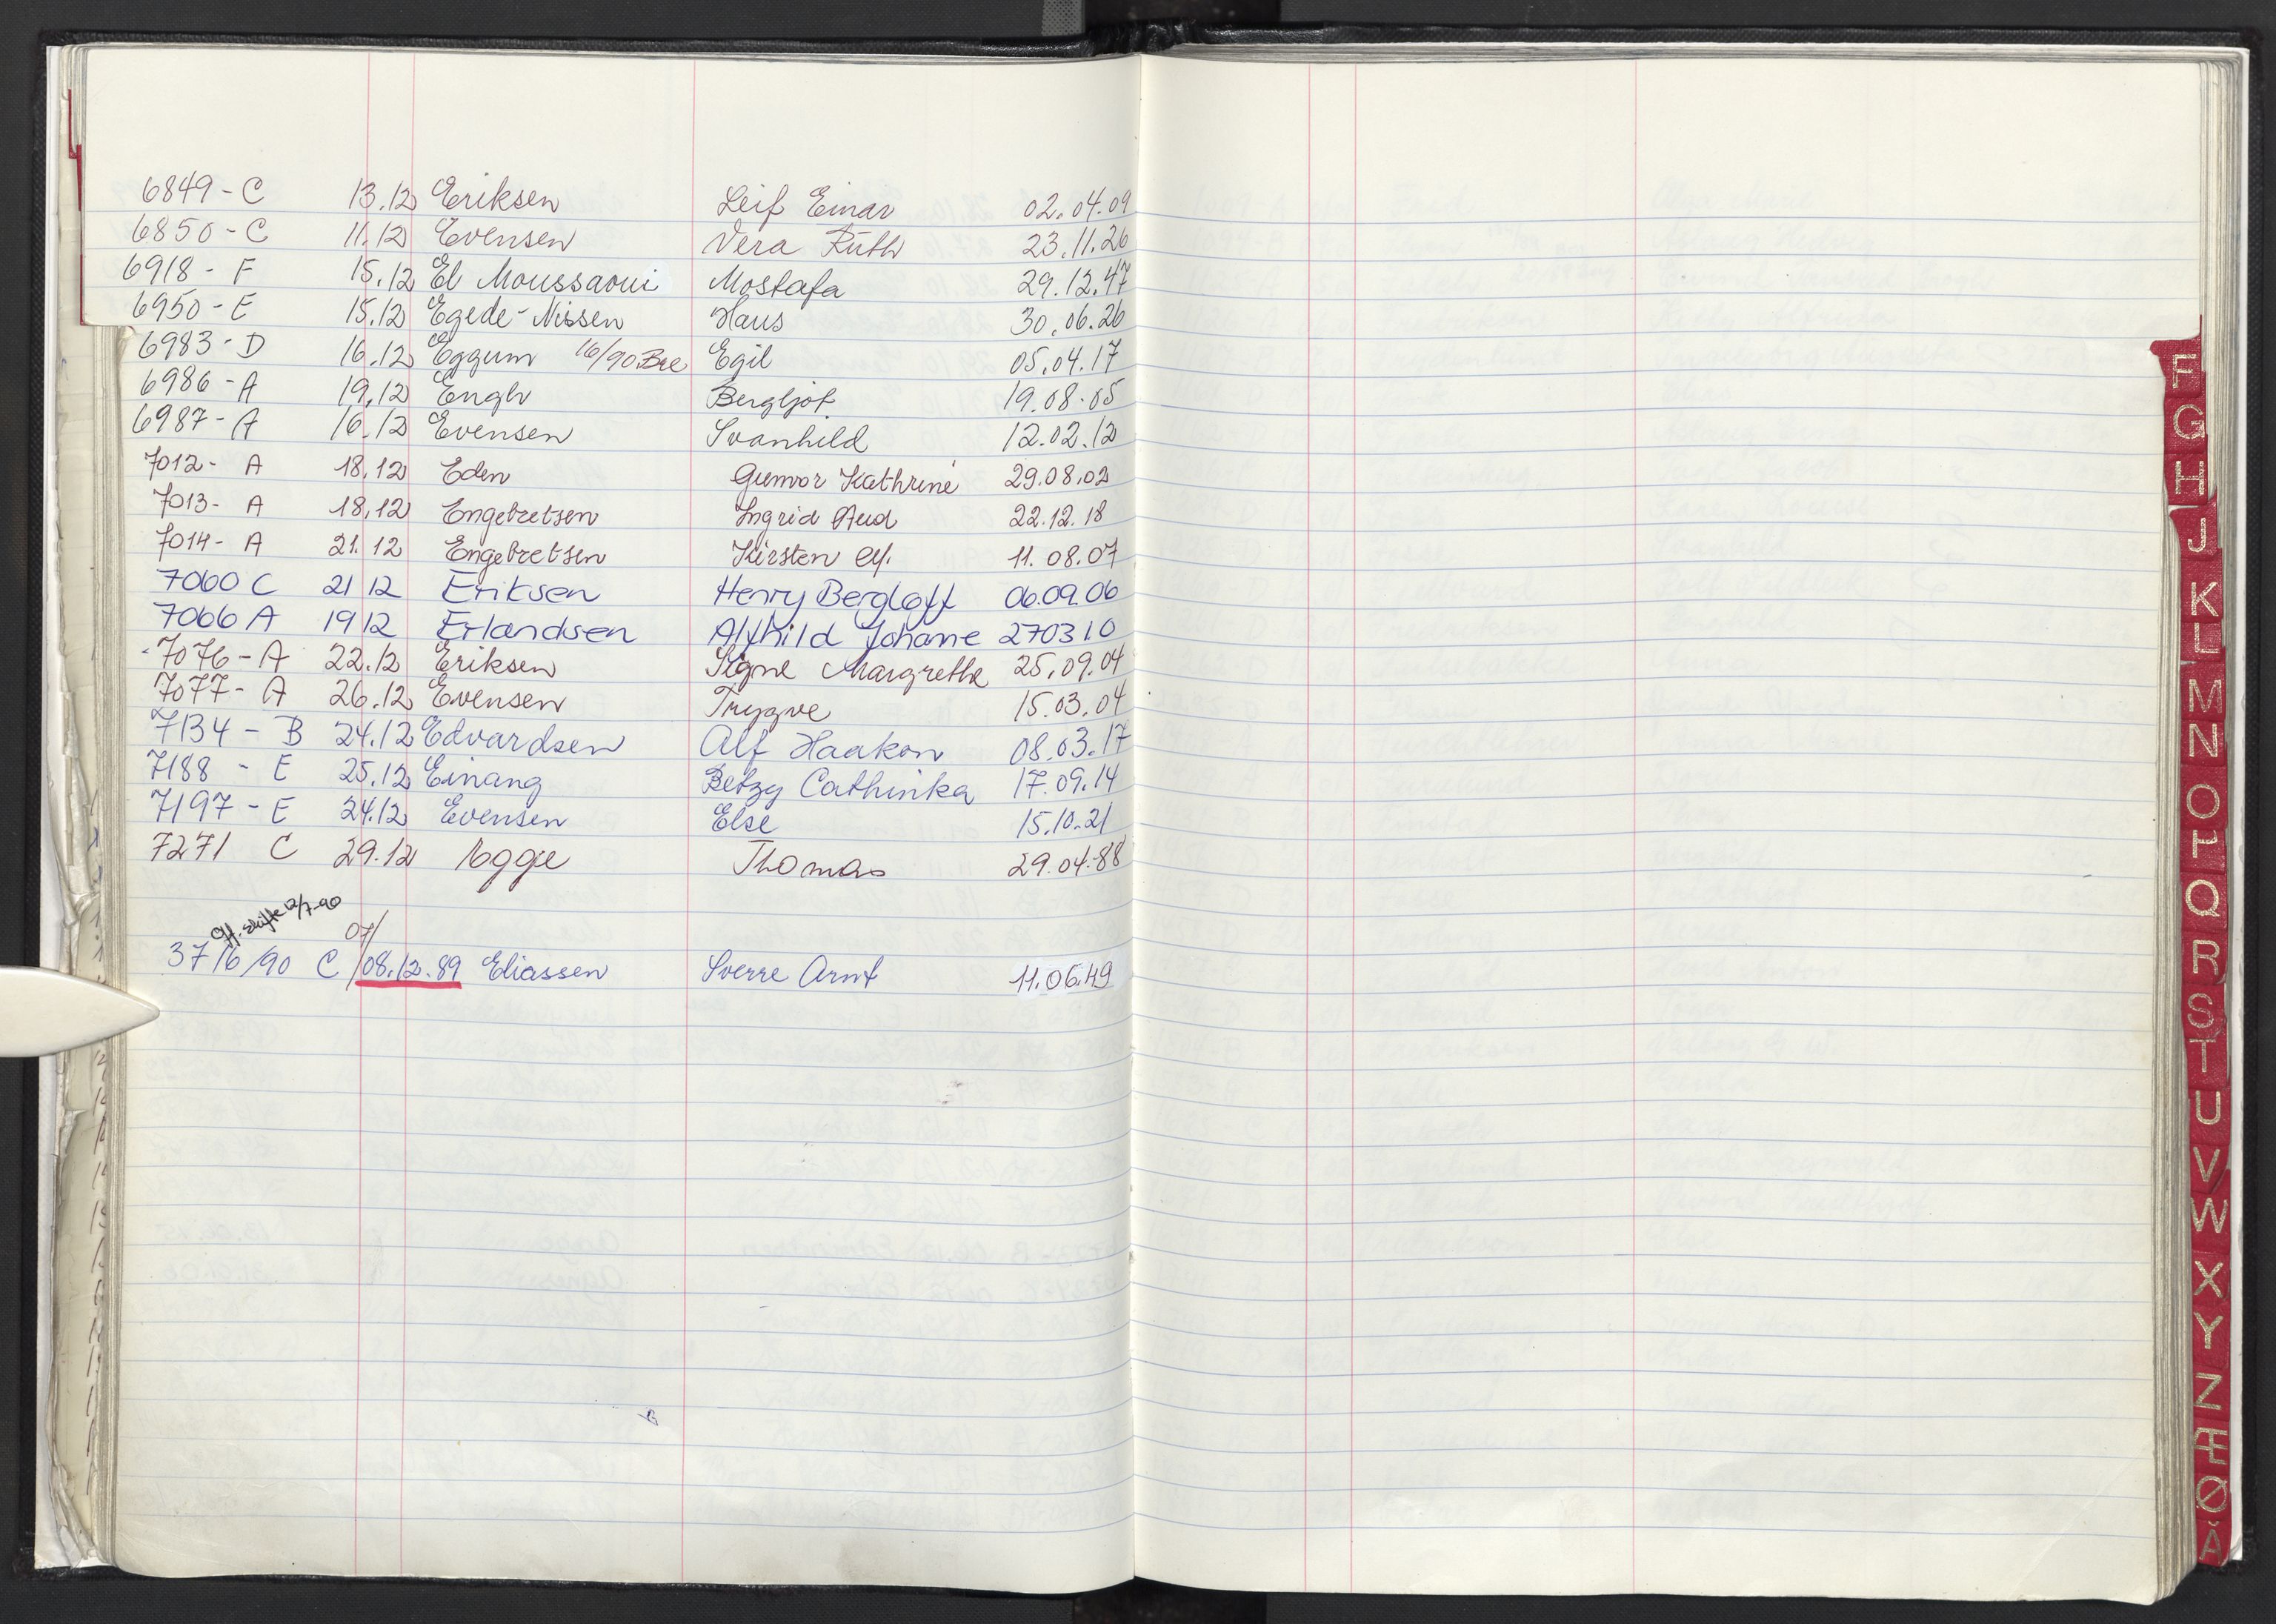 6849 - C 13.12 Eriksen Leif Einar 02.04.09
6850 - C 11.12 Evensen Vera Ruth 23.11.26
6918 - F 15.12 El Moussaoui Mostafa 29.12.47
6950 - E 15.12 Egede-Nissen Hans 30.06.26
6983 - D 16.12 Eggum 16/90 Bre Egil 05.04.17
6986 - A 19.12 Engh Bergljot 19.08.05
6987 - A 16.12 Evensen Svanhild 12.02.12
7012 - A 18.12 Eden Gunvor Kathrine 29.08.02
7013 - A 18.12 Engebretsen Ingrid Aud 22.12.18
7014 - A 21.12 Engebretsen Kirsten M. 11.08.07
7060 C 21 12 Eriksen Henry Bergloff 06.09.06
7066 A 19 12 Erlandsen Alfhild Johanne 270310
7076 - A 22.12 Eriksen Signe Margrethe 25.09.04
7077 - A 26.12 Evensen Trygve 15.03.04
7134 - B 24.12 Edvardsen Alf Haakon 08.03.17
7188 - E 25.12 Einang Betzy Cathinka 17.09.14
7197 - E 24.12 Evensen Else 15.10.21
7271 C 29.12 Egge Thomas 29.04.88
Off. skifte 12/7-90
07/
3716/90 C /08.12.89 Eliassen Sverre Arnt 11.06.49
F
G
H
J
K
L
M
N
O
P
Q
R
S
T
U
V
W
X
Y
Z
Æ
Ø
Å